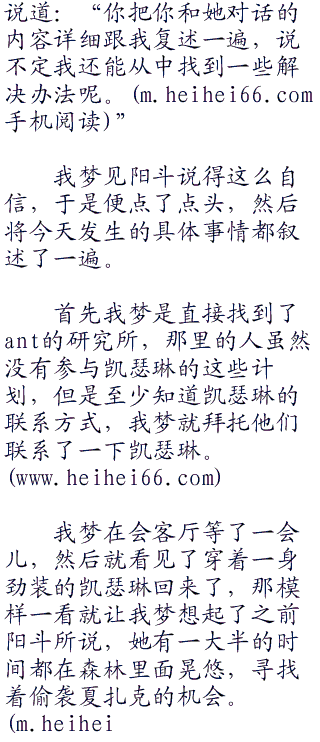 说道：“你把你和她对话的
内容详细跟我复述一遍，说
不定我还能从中找到一些解
决办法呢。(m.heihei66.com
手机阅读)”
我梦见阳斗说得这么自
信，于是便点了点头，然后
将今天发生的具体事情都叙
述了一遍。
首先我梦是直接找到了
ant的研究所，那里的人虽然
没有参与凯瑟琳的这些计
划，但是至少知道凯瑟琳的
联系方式，我梦就拜托他们
联系了一下凯瑟琳。
(www.heihei66.com)
我梦在会客厅等了一会
儿，然后就看见了穿着一身
劲装的凯瑟琳回来了，那模
样一看就让我梦想起了之前
阳斗所说，她有一大半的时
间都在森林里面晃悠，寻找
着偷袭夏扎克的机会。
(m.heihei